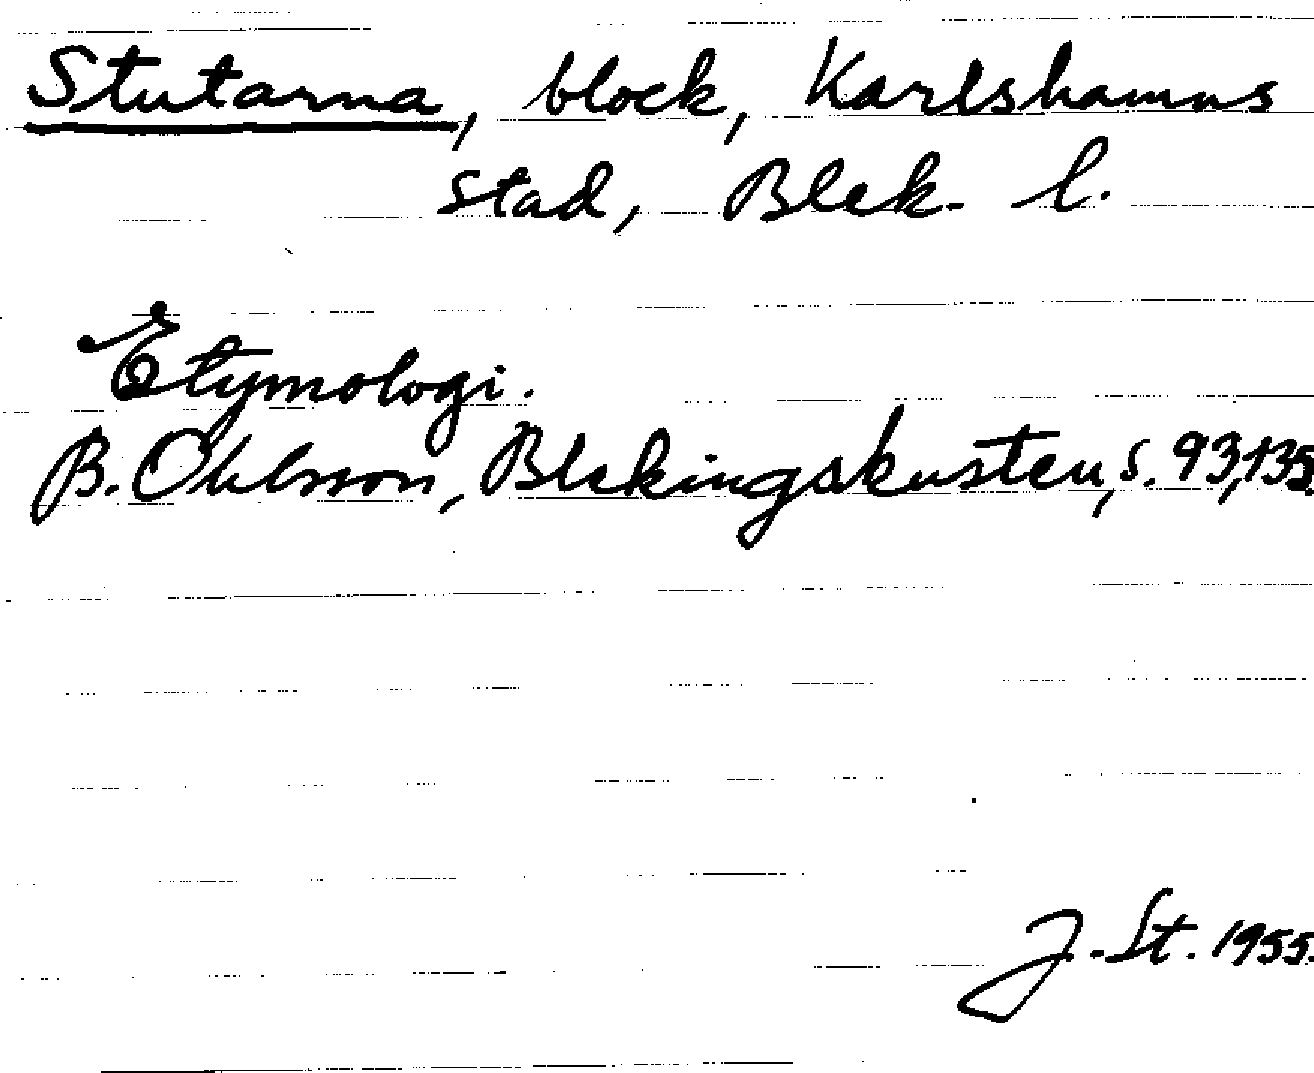 Stutarna, block, Karlshamns
stad, Blek. l.
Etymologi.
B. Ohlsson, Blekingskusten, s. 93, 135.
J. St. 1955.